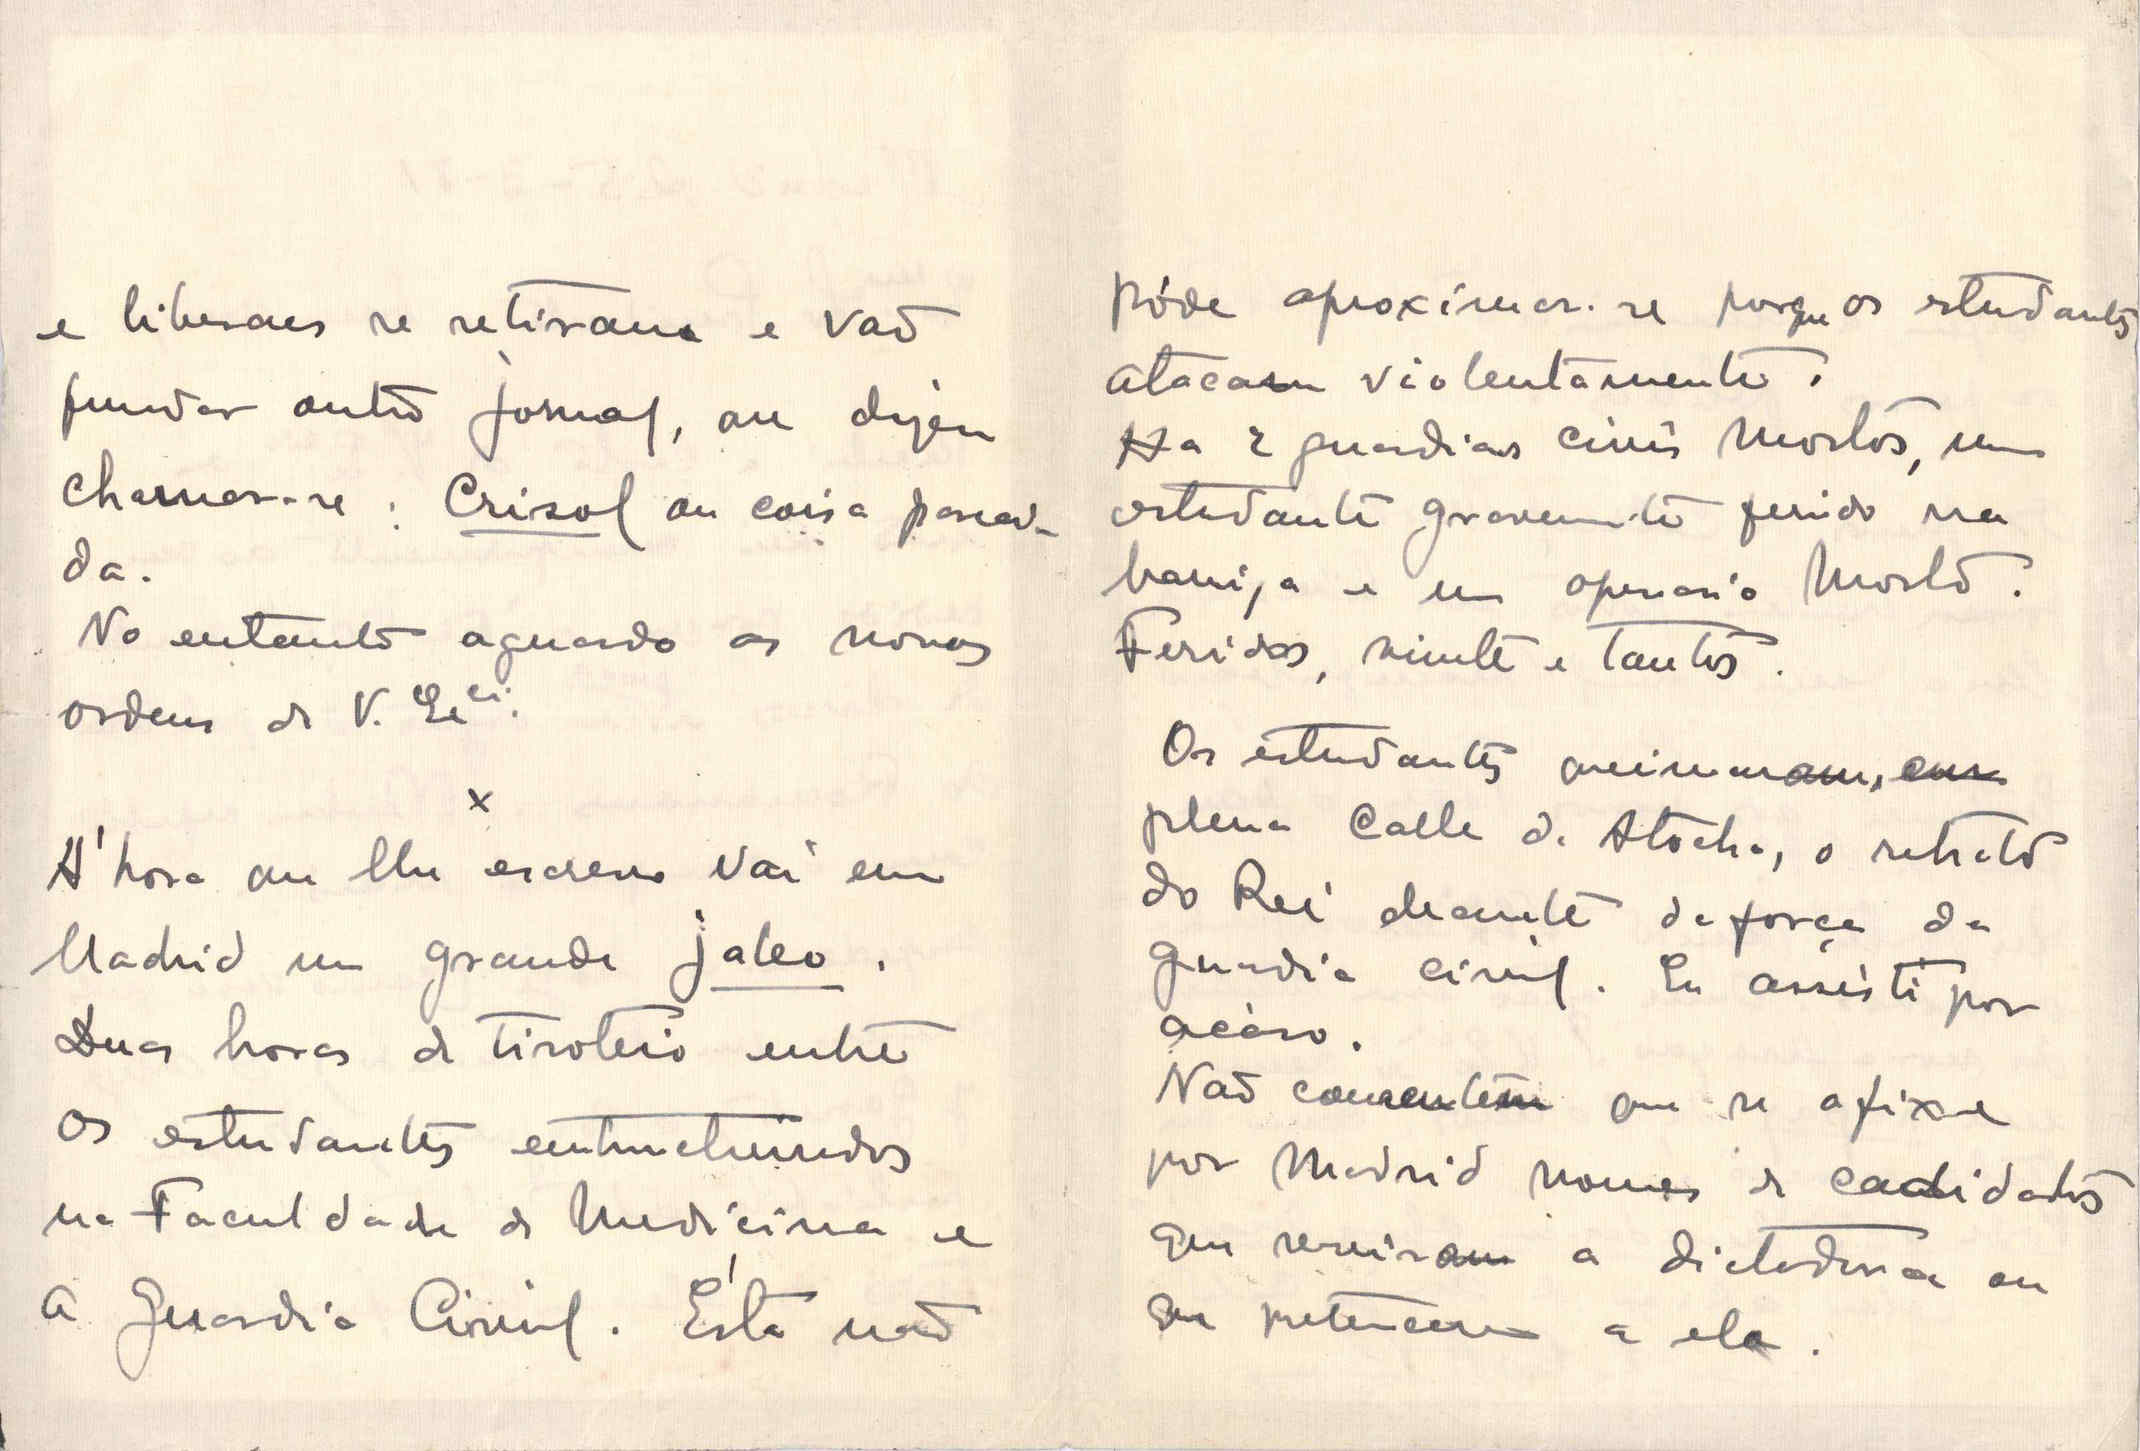 e liberaes se retiram e vaõ
fundar outro jornal, que dizem
chamar-se: Crisol ou coisa pareci-
da.
No entanto aguardo as novas
ordens de V. Ex.cia.
x
A' hora que lhe escrevo vai em
Madrid um grande jaleo.
Duas horas de tiroteio entre
os estudantes entrincheirados
na Faculdade de Medicina e
a Guardia Civil. Ésta naõ
póde aproximar-se porque os estudantes
atacam violentamente.
Ha 2 guardias civis mortos, um
estudante gravemente ferido na
barriga e um operario morto.
Feridos, vinte e tantos.
Os estudantes queimaram, em
plena Calle de Atocha, o retrato
do Rei deante da força da
guardia civil. Eu assisti por
acáso.
Naõ consentem que se afixe
por Madrid nomes de cadidatos
que serviram a dictadura ou
que pertencem a ela.